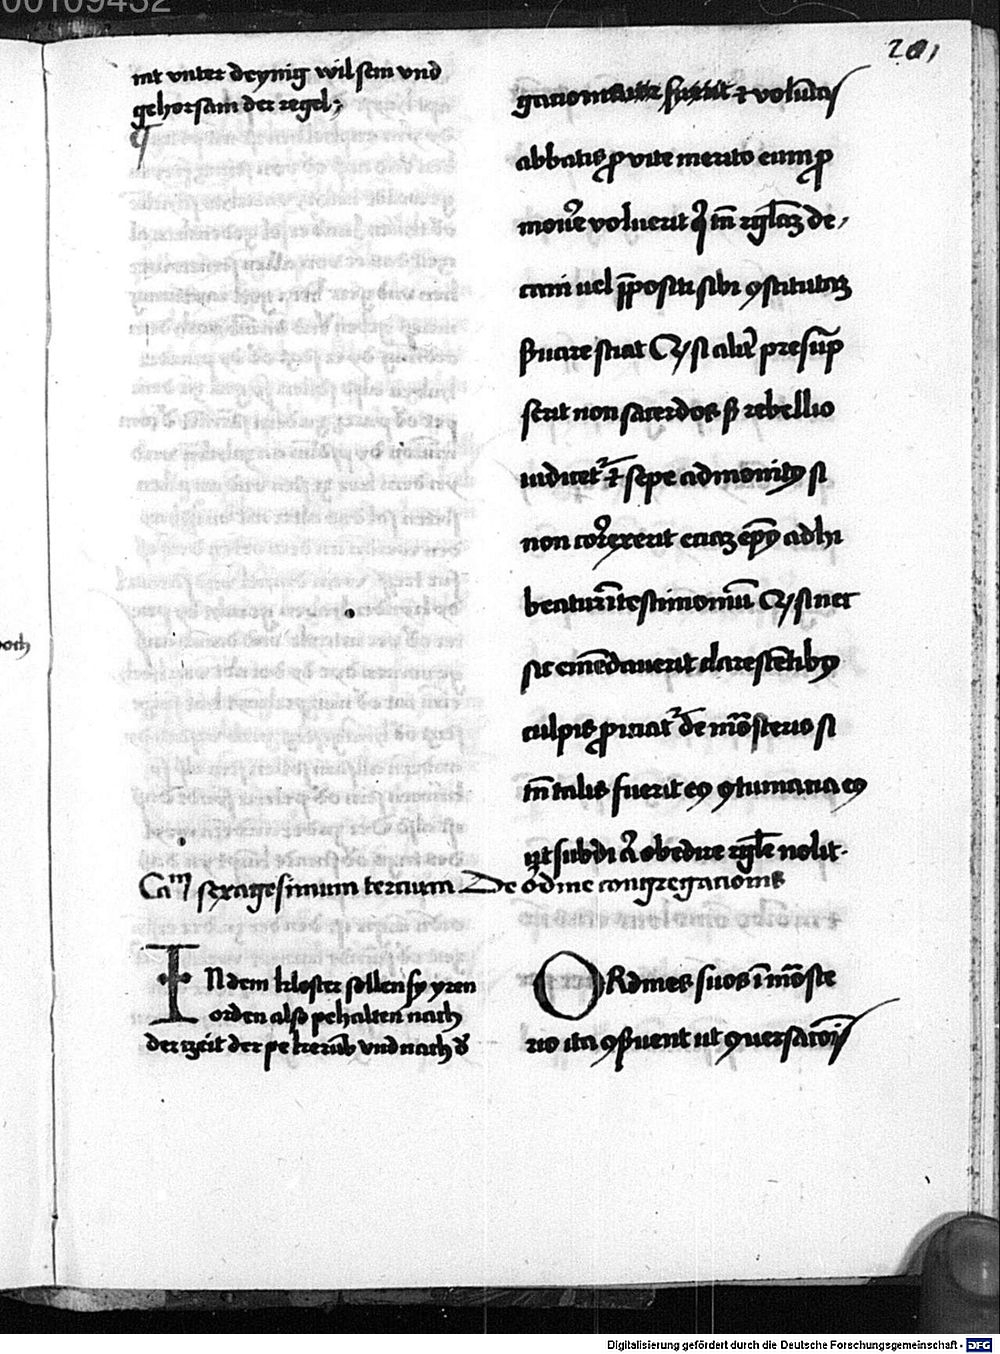 00109432
201
nit vnter deynig wil sein vnd
gehorsam der regel;
gacionis et volũtas
abbatis ꝓ vite merito eum ꝓ
mou͛e voluerit q̃ tñ rgl̃aꝫ de
cani uel p̄positis sibi ꝯstitutaꝫ
ẜuare sciat Qꝫ si alit͛ presũp
serit non sacerdos sꝫ rebellio
iudicet᷑ et sepe admonitꝰ si
non cor͛exerit eciaꝫ ep̄s adhi
beatur ĩ testimoniũ Qꝫ si nec
sic emẽdauerit clarescẽtibꝰ
culpis ꝓiciat᷑ de mõsterio si
tñ talis fuerit eꝰ ꝯtumacia
ut subdi aut obedire rgl̃e nolit.
Cam sexagesimum tercium De ordine congregacionis
IN dem kloster sollen sy yren
orden also pehalten nach
der zeit der pekerũb vnd nach d͛
ORdines suos ĩ mõste
rio ita ꝯẜuent ut ꝯuersac̃ois
och
Digitalisierung gefördert durch die Deutsche Forschungsgemeinschaft - DFG